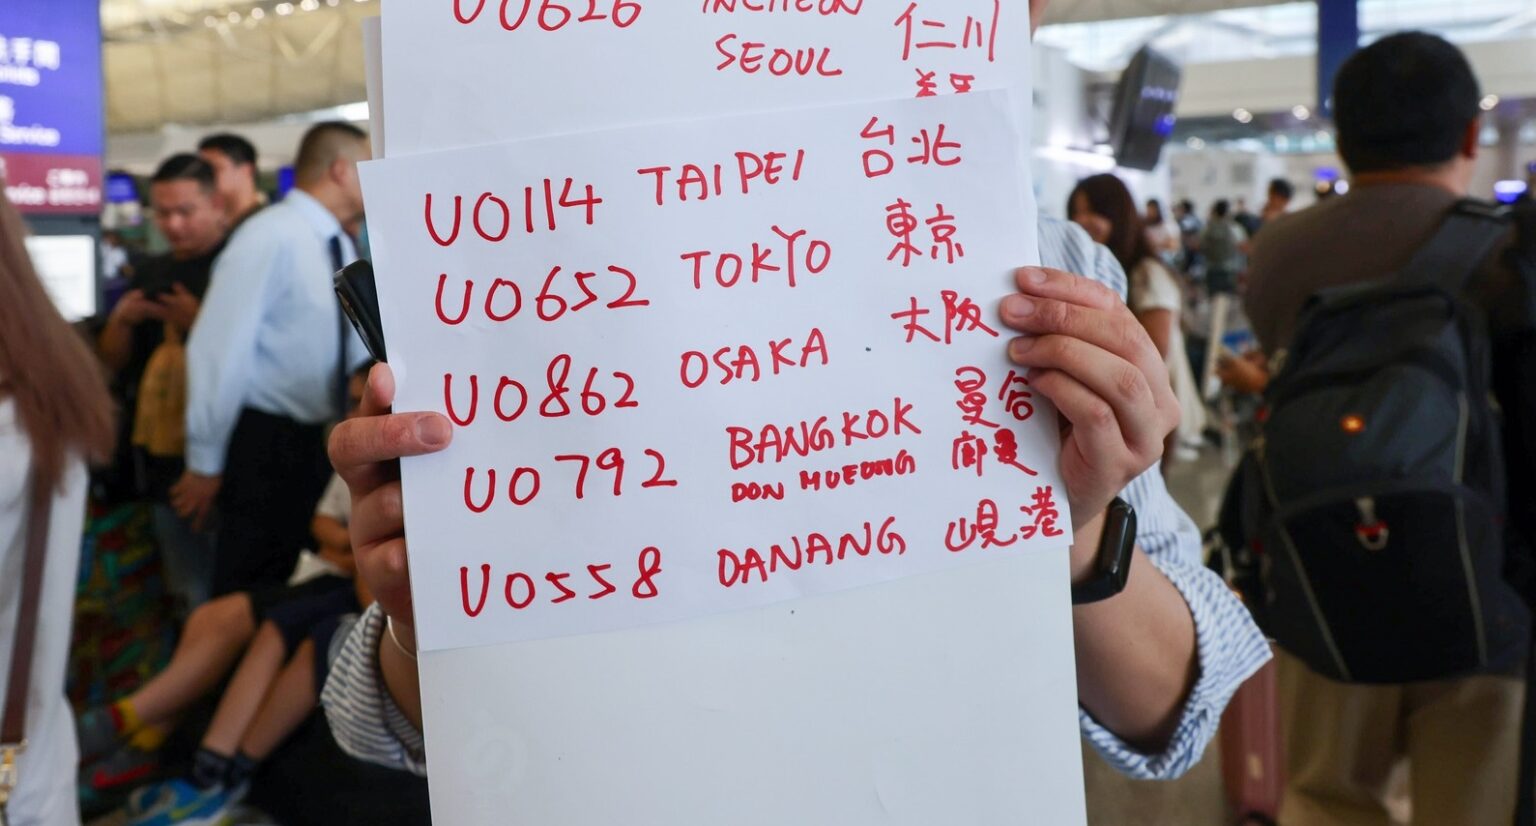 UO626 INCHEON 仁川
SEOUL
UO114 TAIPEI 台北
UO652 TOKYO 東京
UO862 OSAKA 大阪
UO792 BANGKOK 曼谷
DON MUEONG 廊曼
UO558 DANANG 峴港